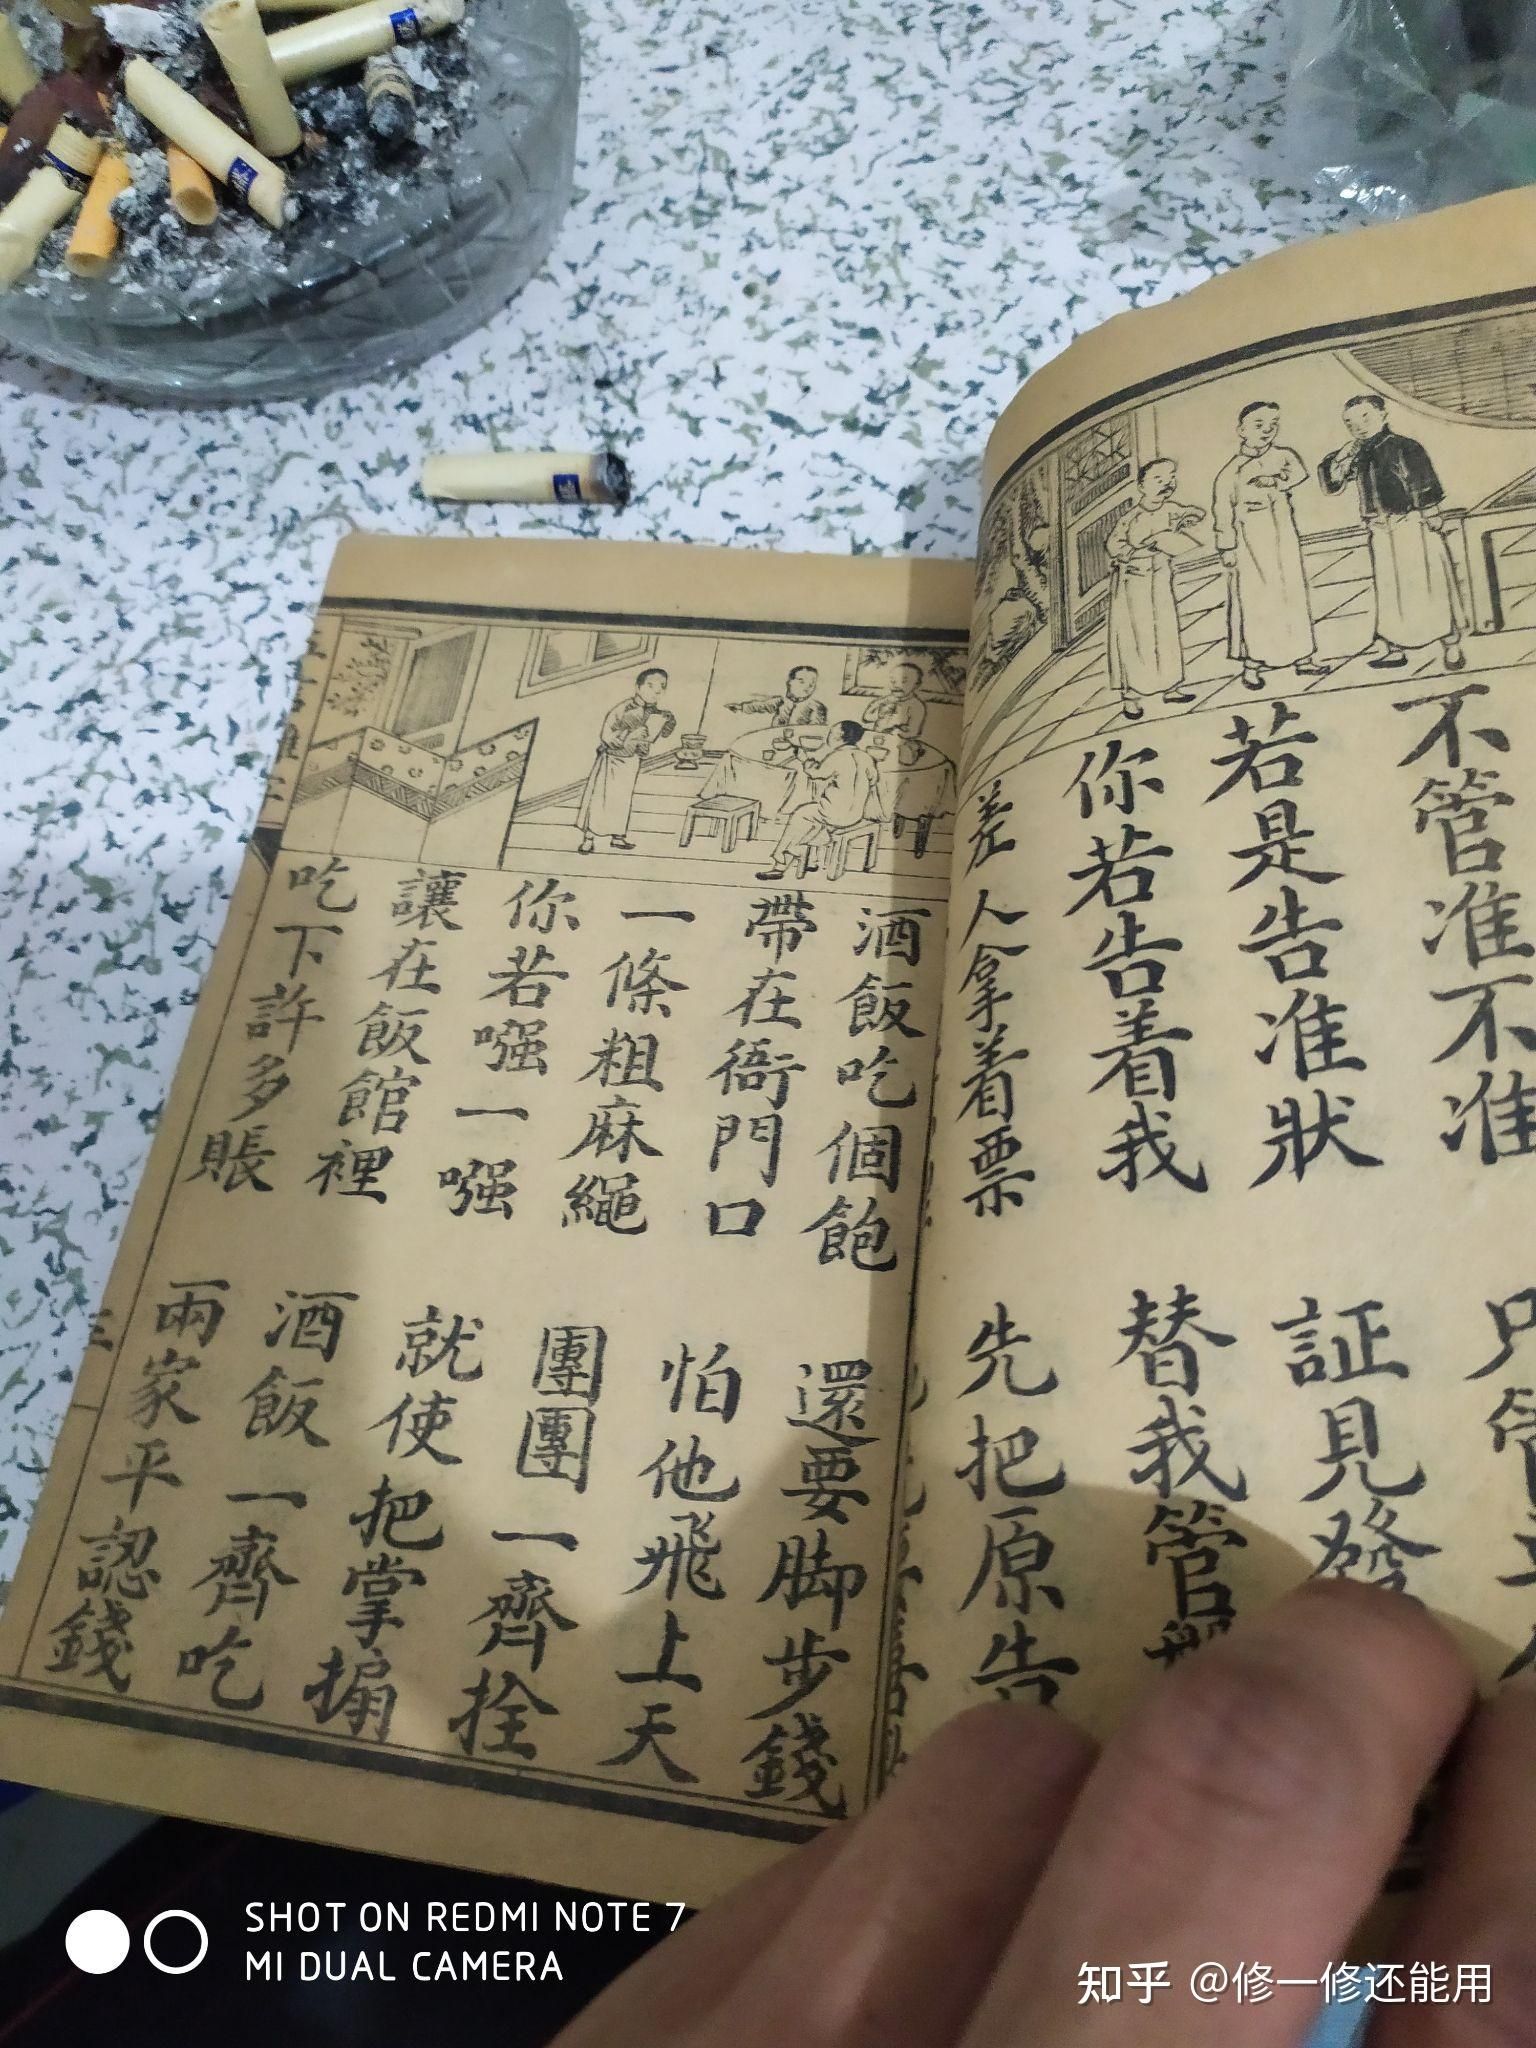 不管准不准
若是告准狀
證見發
你若告着我
替我管
差人拿着票
先把原告
酒飯吃個飽
還要脚步錢
帶在衙門口
怕他飛上天
一條粗麻繩
團團一齊拴
你若嘔一嘔
就使把掌搧
讓在飯館裡
酒飯一齊吃
吃下許多賬
兩家平認錢
三
SHOT ON REDMI NOTE 7
MI DUAL CAMERA
知乎 @修一修还能用